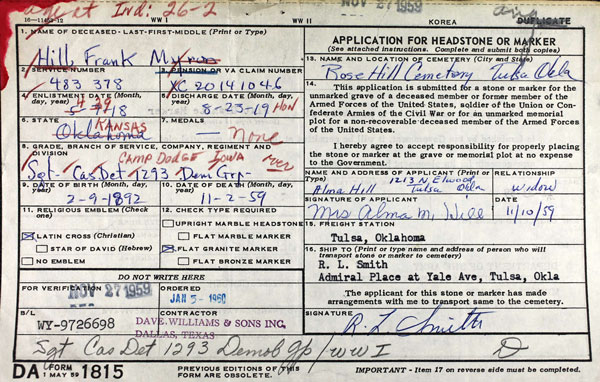 Ind: 26-2
NOV 27 1959
16—11463-12 WW I WW II KOREA DUPLICATE
1. NAME OF DECEASED - LAST-FIRST-MIDDLE (Print or Type)
Hill, Frank Myron
2. SERVICE NUMBER
483 378
3. PENSION OR VA CLAIM NUMBER
XC 20141046
4. ENLISTMENT DATE (Month, day, year)
4 29
5 - 18
5. DISCHARGE DATE (Month, day, year)
8-23-19 HON
6. STATE
KANSAS
Oklahoma
7. MEDALS
— None
8. GRADE, BRANCH OF SERVICE, COMPANY, REGIMENT AND DIVISION
CAMP DODGE IOWA
Sgt- Cas Det 1293 Dem Grp-
9. DATE OF BIRTH (Month, day, year)
2-9-1892
10. DATE OF DEATH (Month, day, year)
11-2-59
11. RELIGIOUS EMBLEM (Check one)
LATIN CROSS (Christian)
STAR OF DAVID (Hebrew)
NO EMBLEM
12. CHECK TYPE REQUIRED
UPRIGHT MARBLE HEADSTONE
FLAT MARBLE MARKER
FLAT GRANITE MARKER
FLAT BRONZE MARKER
DO NOT WRITE HERE
FOR VERIFICATION
NOV 27 1959
ORDERED
JAN 5- 1960
B/L
WY-9726698
CONTRACTOR
DAVE. WILLIAMS & SONS INC,
DALLAS, TEXAS
Sgt Cas Det 1293 Demob gp/ WW I
DA FORM 1 MAY 59 1815
PREVIOUS EDITIONS OF THIS FORM ARE OBSOLETE.
APPLICATION FOR HEADSTONE OR MARKER
(See attached instructions. Complete and submit both copies)
13. NAME OF LOCATION OF CEMETERY (City and State)
Rose Hill Cemetery Tulsa Okla
14.
This application is submitted for a stone or marker for the
unmarked grave of a deceased member or former member of the
Armed Forces of the United States, soldier of the Union or Con-
federate Armies of the Civil War or for an unmarked memorial
plot for a non-recoverable deceased member of the Armed Forces
of the United States.
I hereby agree to accept responsibility for properly placing
the stone or marker at the grave or memorial plot at no expense
to the Government.
NAME AND ADDRESS OF APPLICANT (Print or Type)
1213 N Elwood
Alma Hill Tulsa Okla
RELATIONSHIP
widow
SIGNATURE OF APPLICANT
Mrs Alma M. Hill
DATE
11/10/59
15. FREIGHT STATION
Tulsa, Oklahoma
16. SHIP TO (Print or type name and address of person who will transport stone or marker to cemetery)
R. L. Smith
Admiral Place at Yale Ave, Tulsa, Okla
The applicant for this stone or marker has made
arrangements with me to transport same to the cemetery.
SIGNATURE
R. L. Smith
D
IMPORTANT - Item 17 on reverse side must be completed.